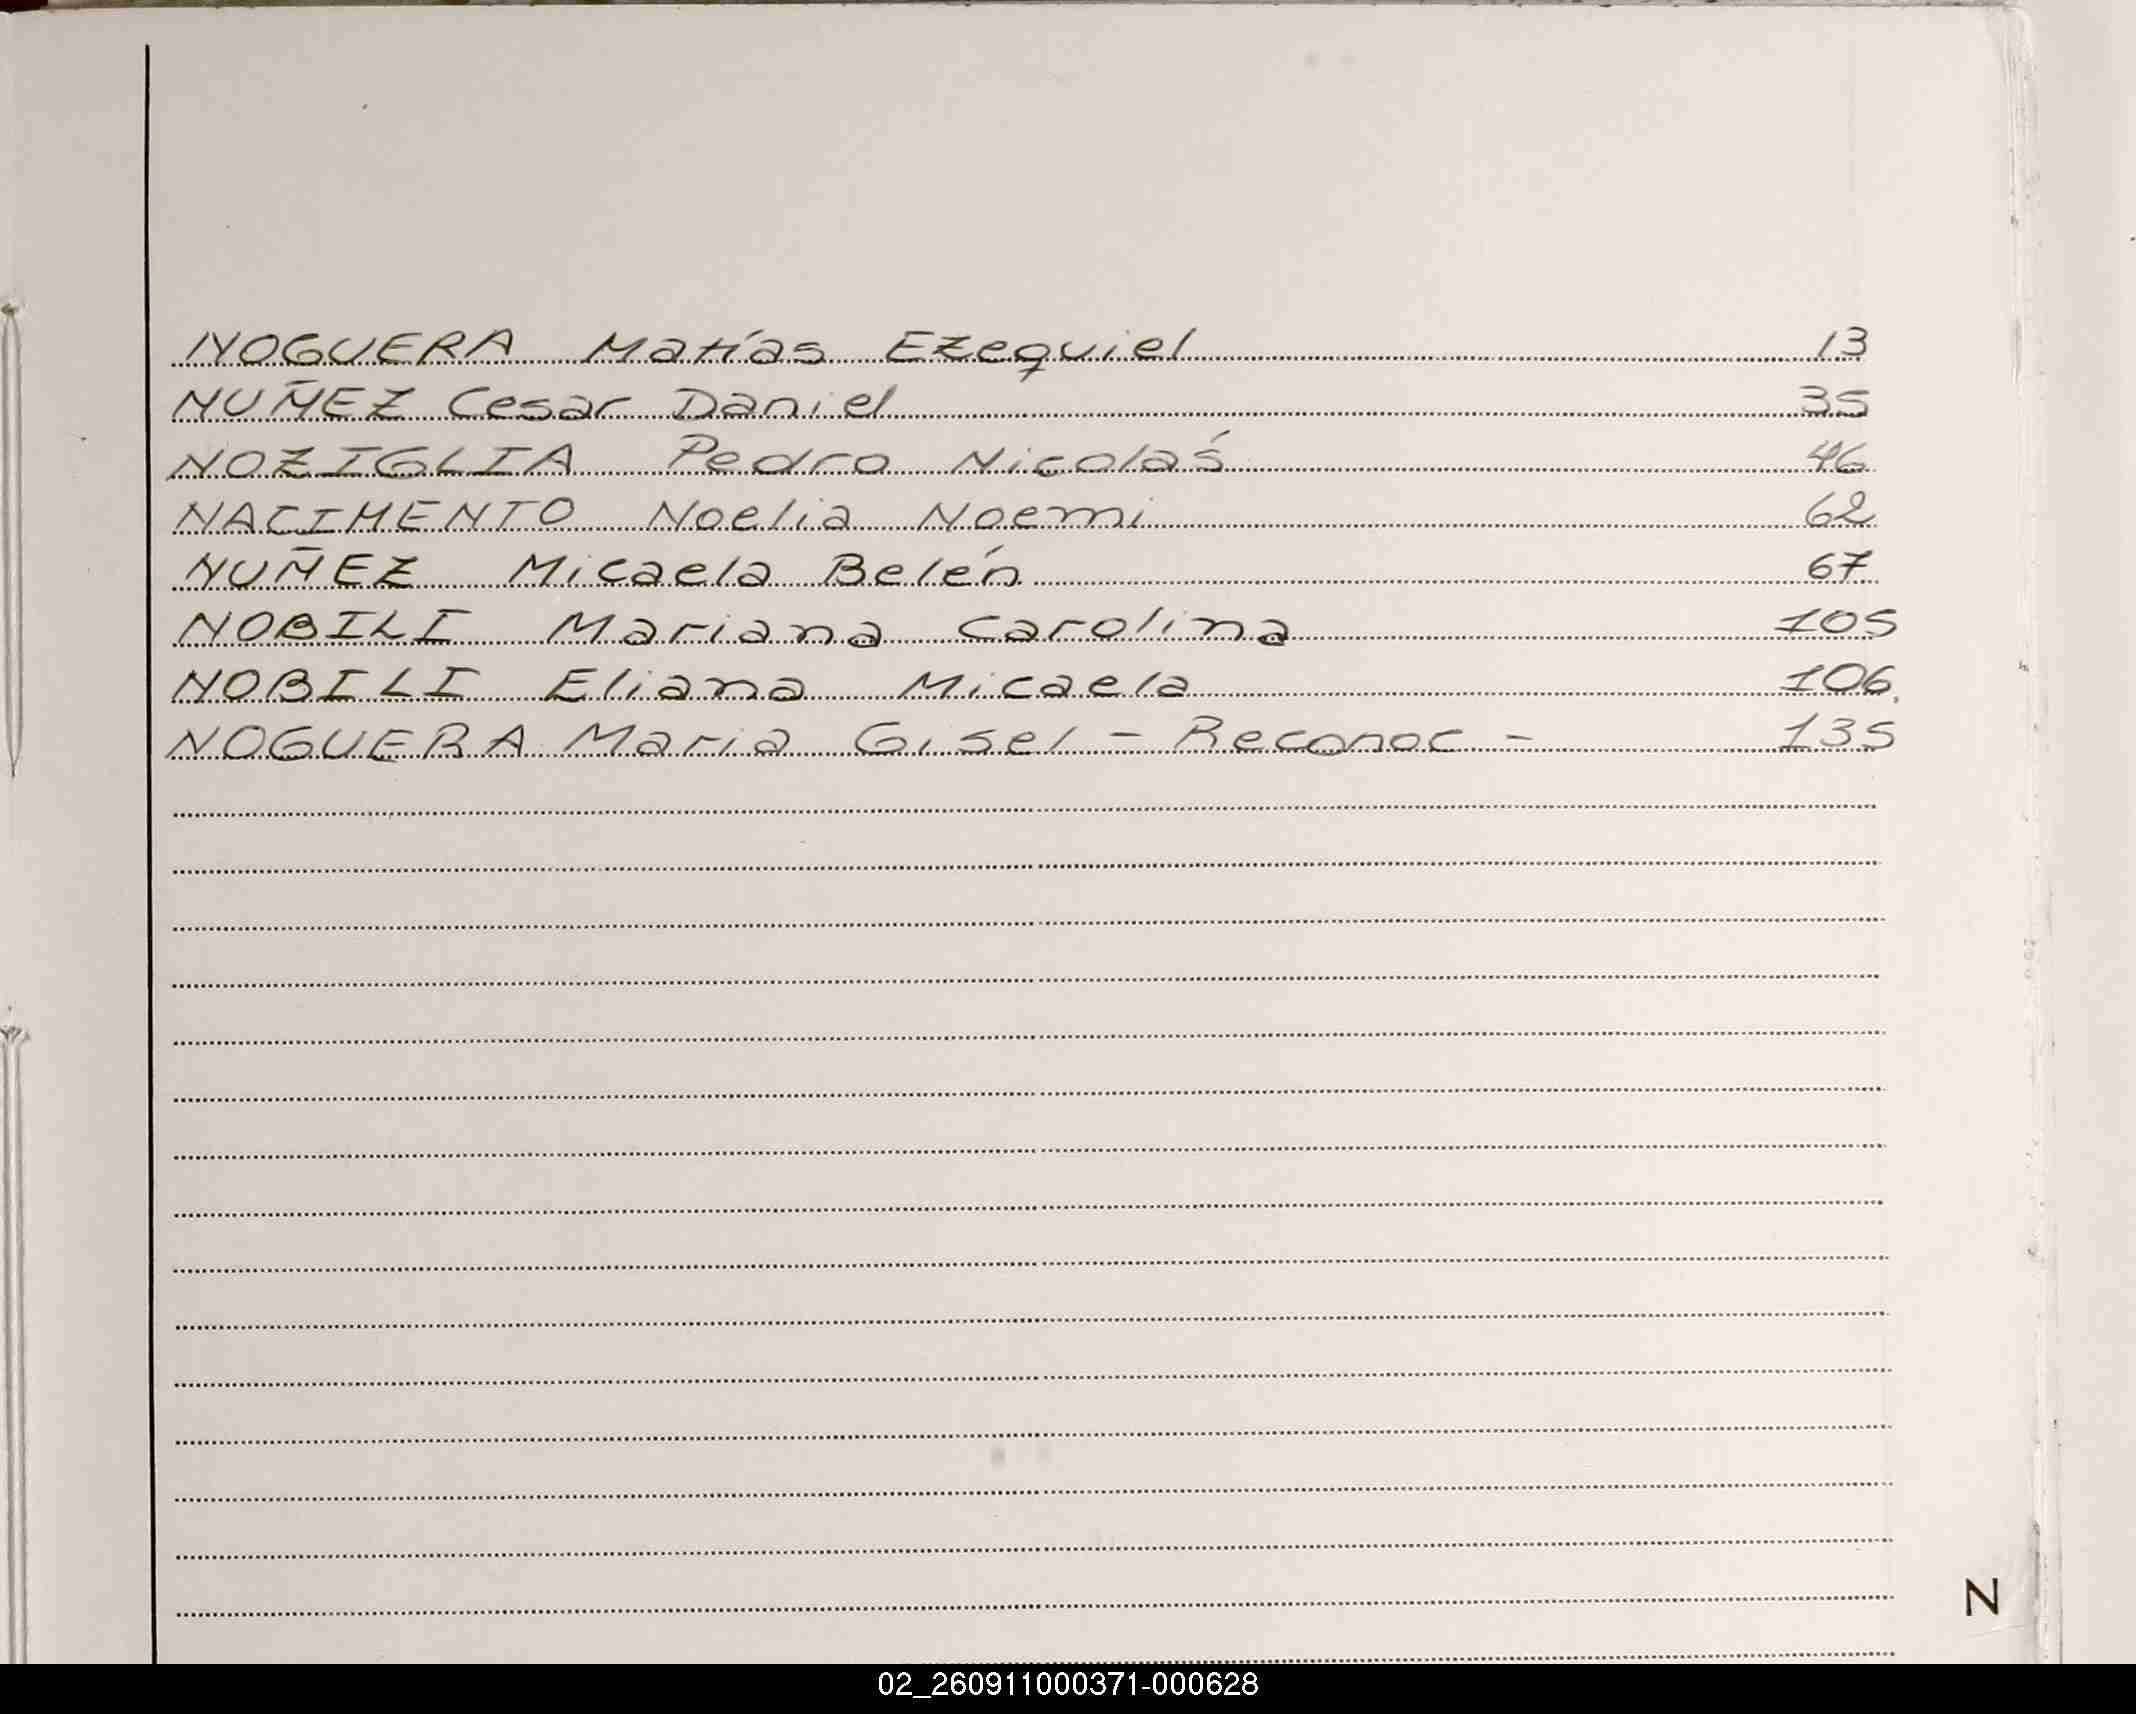 NOGUERA Matías Ezequiel 13
NUÑEZ Cesar Daniel 35
NOZIGLIA Pedro Nicolás 46
NACIMENTO Noelia Noemi 62
NUÑEZ Micaela Belén 67
NOBILI Mariana Carolina 105
NOBILI Eliana Micaela 106.
NOGUERA Maria Gisel - Reconoc - 135
N
02_260911000371-000628